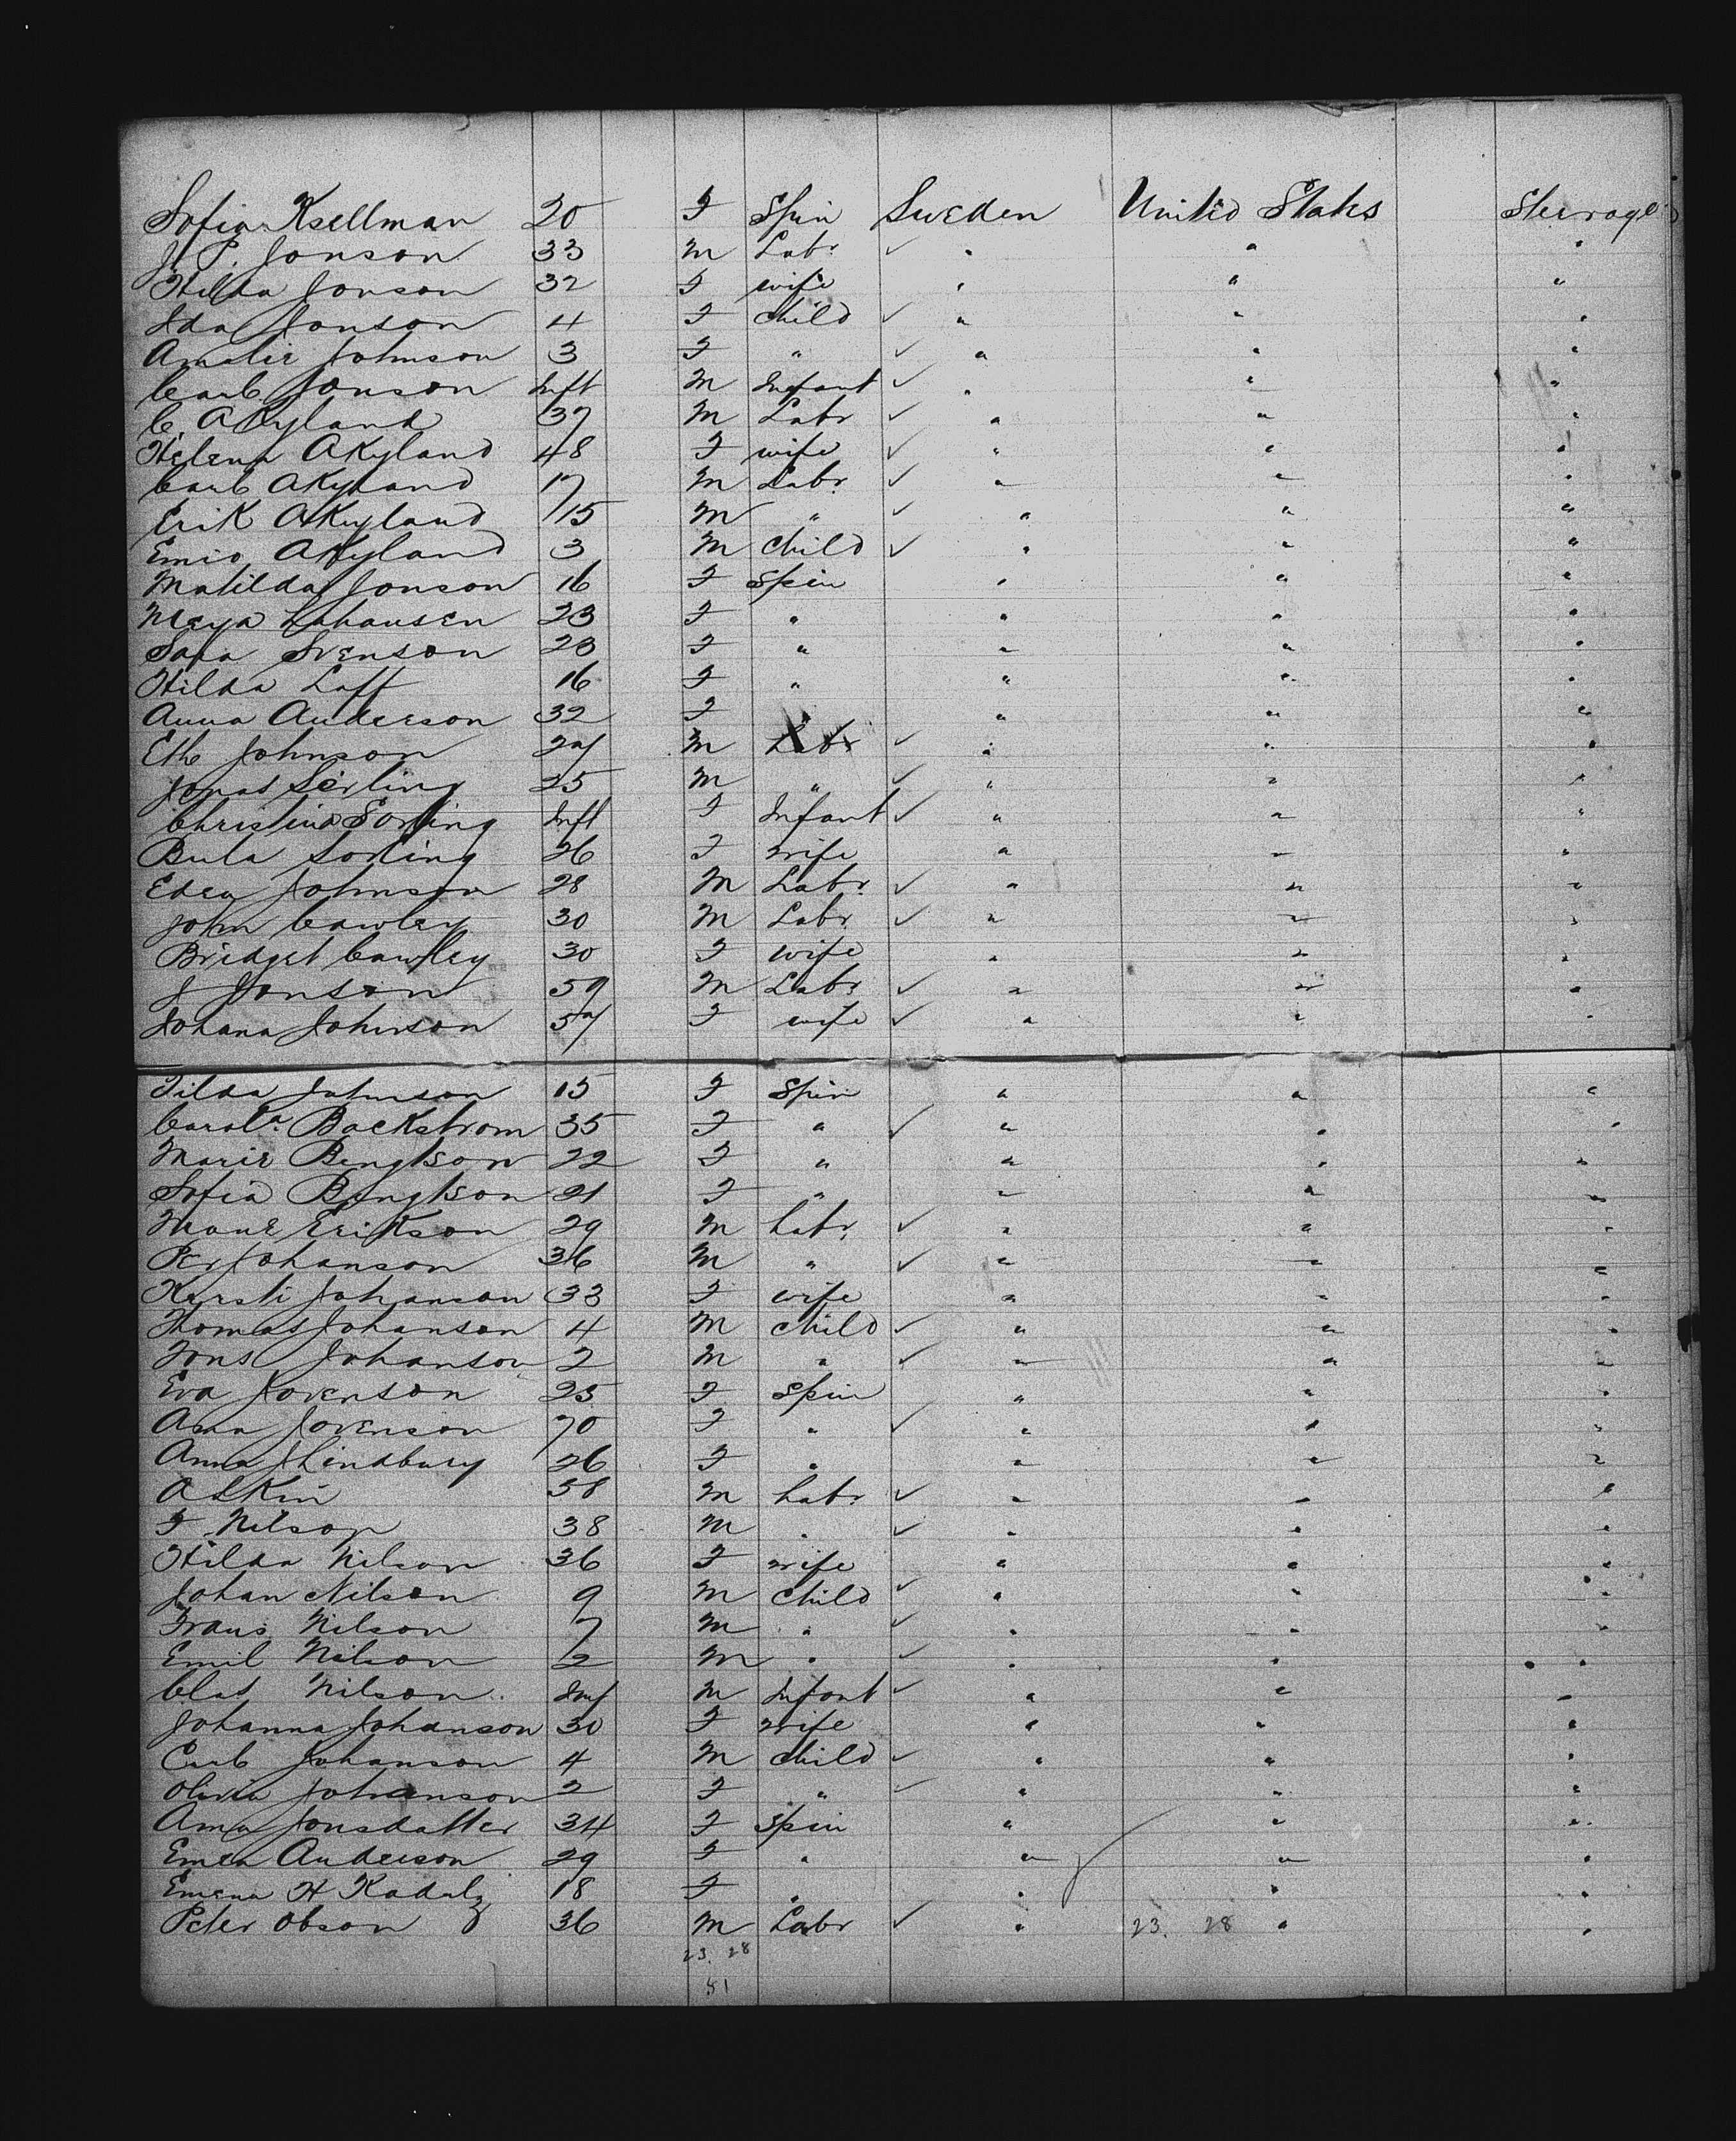 Sofia Ksellman 20 F Spin Sweden United States Steerage
J. P. Jonson 33 M Labr. ✓ " " "
Hilda Jonson 32 F wife " " "
Ida Jonson 4 F Child ✓ " " "
Amalie Johnson 3 F " ✓ " " "
Carl Jonson Inft M Infant ✓ " " "
C. Akyland 37 M Labr ✓ " " "
Helena Akyland 48 F wife ✓ " " "
Carl Akyland 17 M Labr. ✓ " " "
Erik Akyland 15 M " ✓ " " "
Akyland 3 M Child ✓ " " "
Matilda Jonson 16 F Spin " " "
Maya 23 F " " " "
Sara Svenson 23 F " " " "
Hilda Laff 16 F " " " "
Anna Anderson 32 F " " "
Johnson 27 M Labr ✓ " " "
Jonas 25 M " ✓ " " "
Christina Inft F Infant ✓ " " "
Sorling 26 F wife " " "
Johnson 28 M Labr. ✓ " " "
John Cawley 30 M Labr. ✓ " " "
Bridget Cawley 30 F wife " " "
J Jonson 59 M Labr. ✓ " " "
Johana Johnson 57 F wife ✓ " " "
Tilda Johnson 15 F Spin " " "
Backstrom 35 F " ✓ " " "
Marie Bengtson 22 F " " " "
Sofia Bengtson 21 F " " " "
Erikson 29 M Labr. ✓ " " "
Per Johanson 36 M " ✓ " " "
Kersti Johanson 33 F wife " " "
Thomas Johanson 4 M Child ✓ " " "
Johanson 2 M " ✓ " " "
Eva Jovenson 25 F Spin " " "
Jovenson 70 F " ✓ " " "
Anna J Lindburg 26 F " " " "
38 M Labr. ✓ " " "
F Nilson 38 M " ✓ " " "
Hilda Nilson 36 F wife " " "
Johan Nilson 9 M Child ✓ " " "
Frans Nilson 7 M " ✓ " " "
Emil Nilson 2 M " ✓ " " "
Clas Nilson Inf M Infant ✓ " " "
Johanna Johanson 30 F wife " " "
Carl Johanson 4 M Child ✓ " " "
Johanson 2 F " ✓ " " "
Jonsdatter 34 F Spin " " "
Anderson 29 F " " " "
H 18 F " " " "
Peter Obson 36 M Labr ✓ " 23. 28 " "
23. 28
51